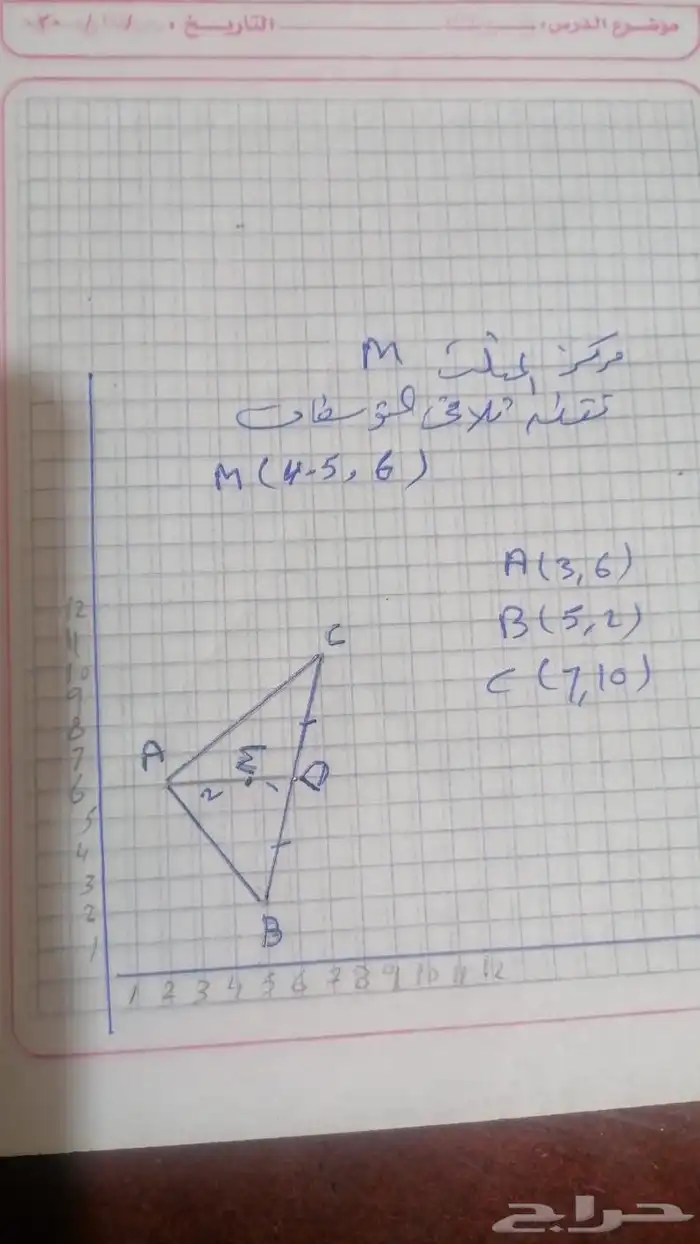 موضوع الدرس: التاريخ: / / ٢٠
مركز المثلث M
تقطع ثلاث المتوسطات
M (4.5, 6)
A (3, 6)
B (5, 2)
C (7, 10)
12
11
10
9
8
7
6
5
4
3
2
1
C
A
M
D
2
1
B
1 2 3 4 5 6 7 8 9 10 11 12
حراج